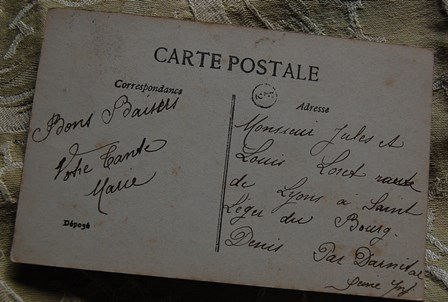 CARTE POSTALE
Correspondance
Adresse
Bons Baisers
Votre Tante
Marie
Déposé
Monsieur Jules et
Louis Loret route
de Lyons à Saint
Léger du Bourg-
Denis Par Darnétal
Seine Inf